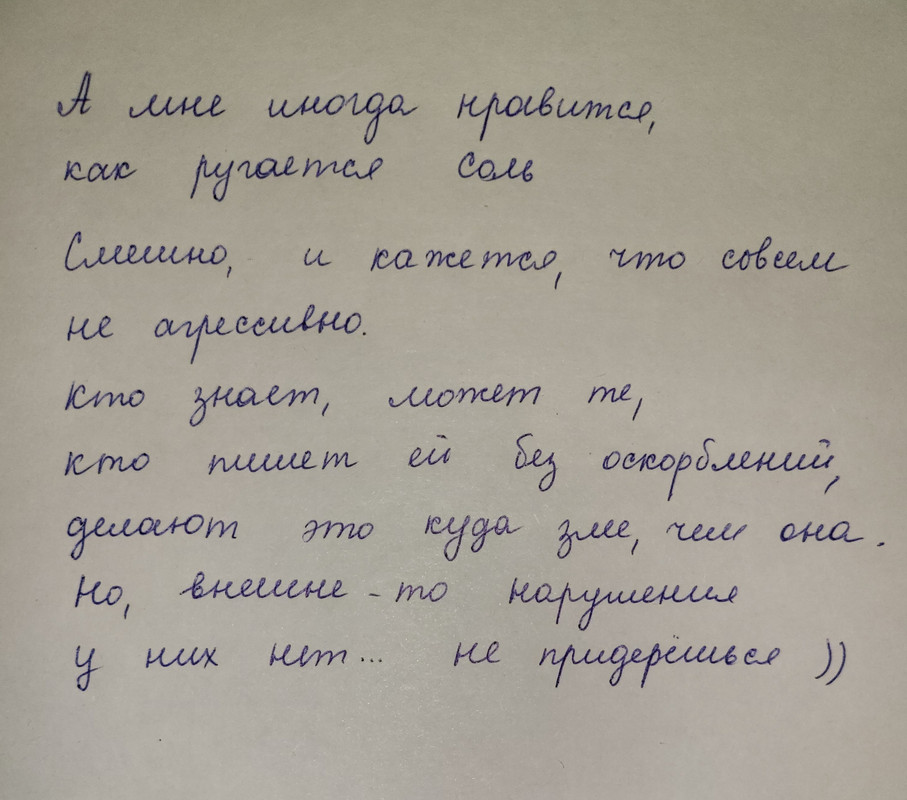 А мне иногда нравится,
как ругается Соль
Смешно, и кажется, что совсем
не агрессивно.
Кто знает, может те,
кто пишет ей без оскорблений,
делают это куда злее, чем она.
Но, внешне-то нарушения
у них нет... не придерёшься ))